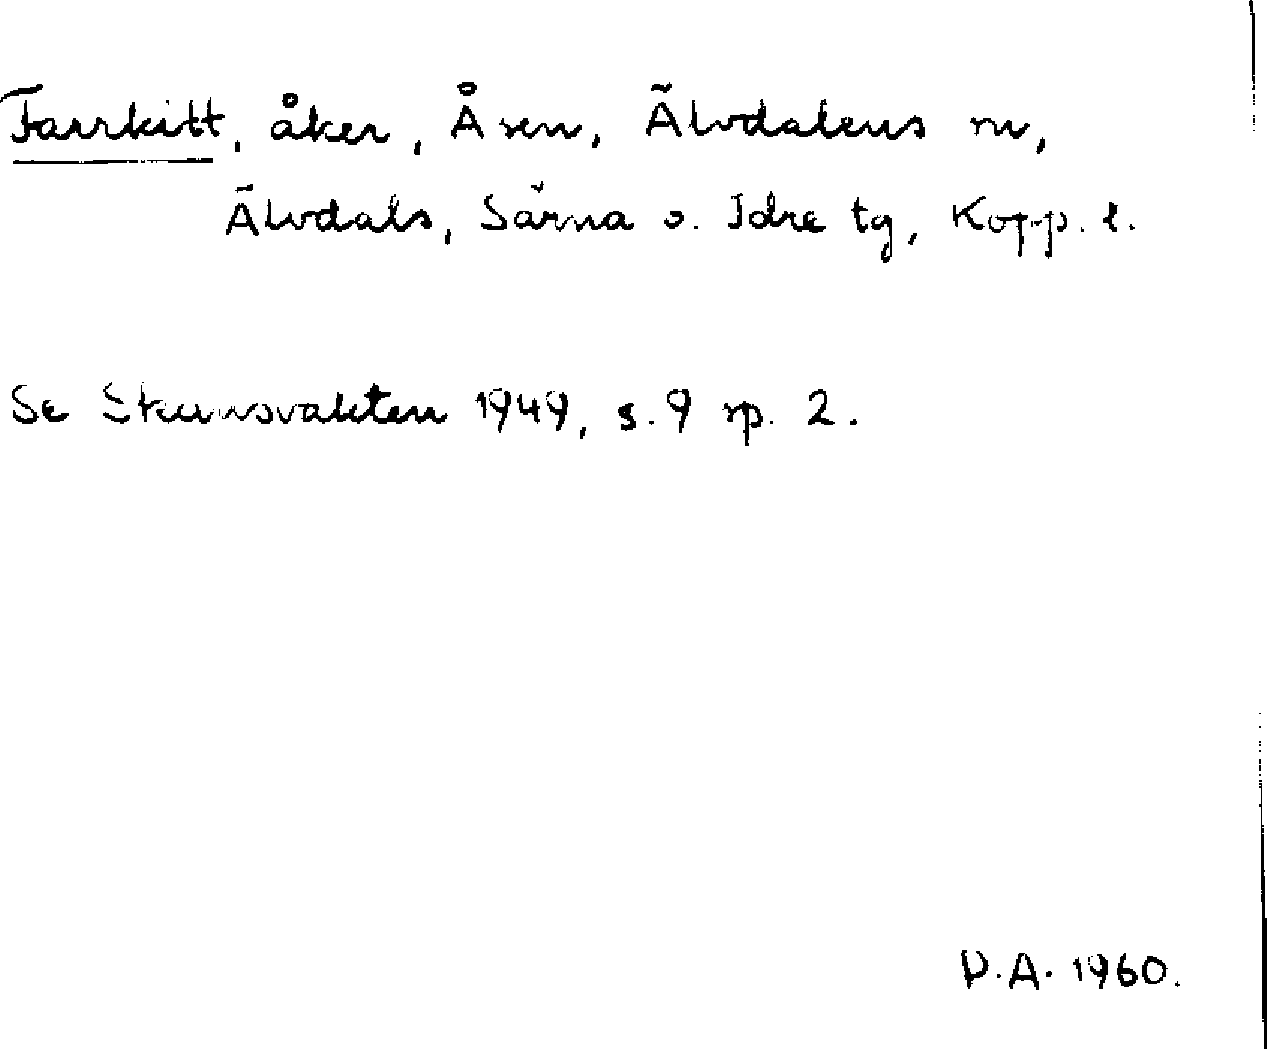 Farrkitt, åker, Åsen, Älvdalens sn,
Älvdals, Särna o. Idre tg, Kopp. l.
Se Skansvakten 1949, s. 9 sp. 2.
D.A. 1960.